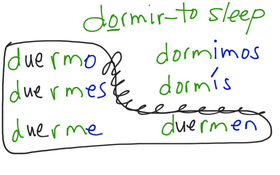 dormir-to sleep
duermo dormimos
duermes dormís
duerme duermen